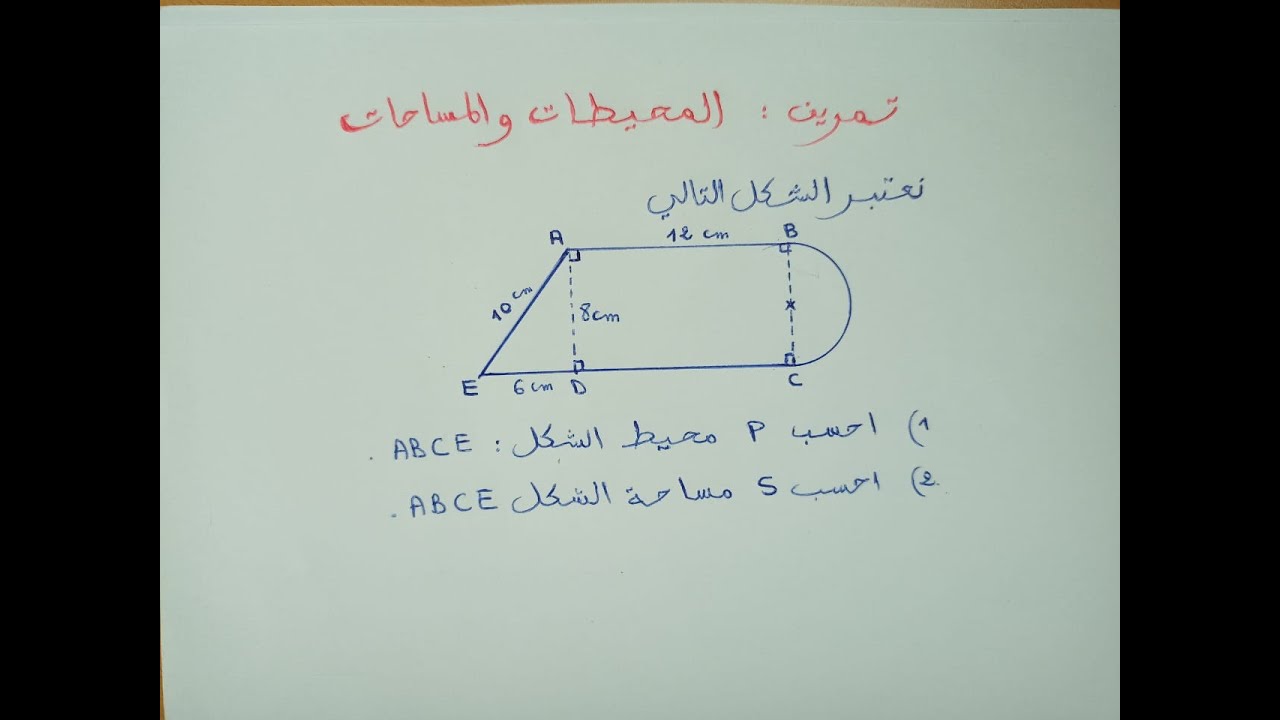 تمرين : المحيطات والمساحات
نعتبر الشكل التالي
A 12 cm B
10 cm 8 cm
E 6 cm D C
1) احسب P محيط الشكل : ABCE .
2) احسب S مساحة الشكل ABCE .